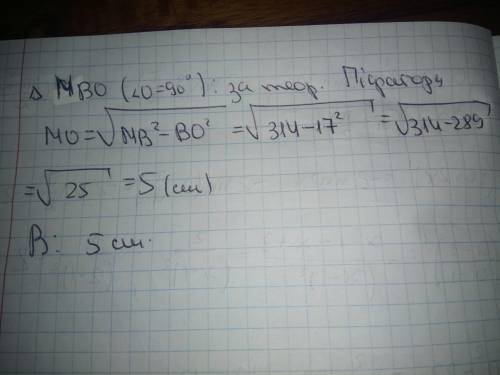 Δ MBO (∠O=90°): за теор. Піфагора
MO=√MB²-BO² =√314-17² =√314-289
=√25 =5 (см)
В: 5 см.